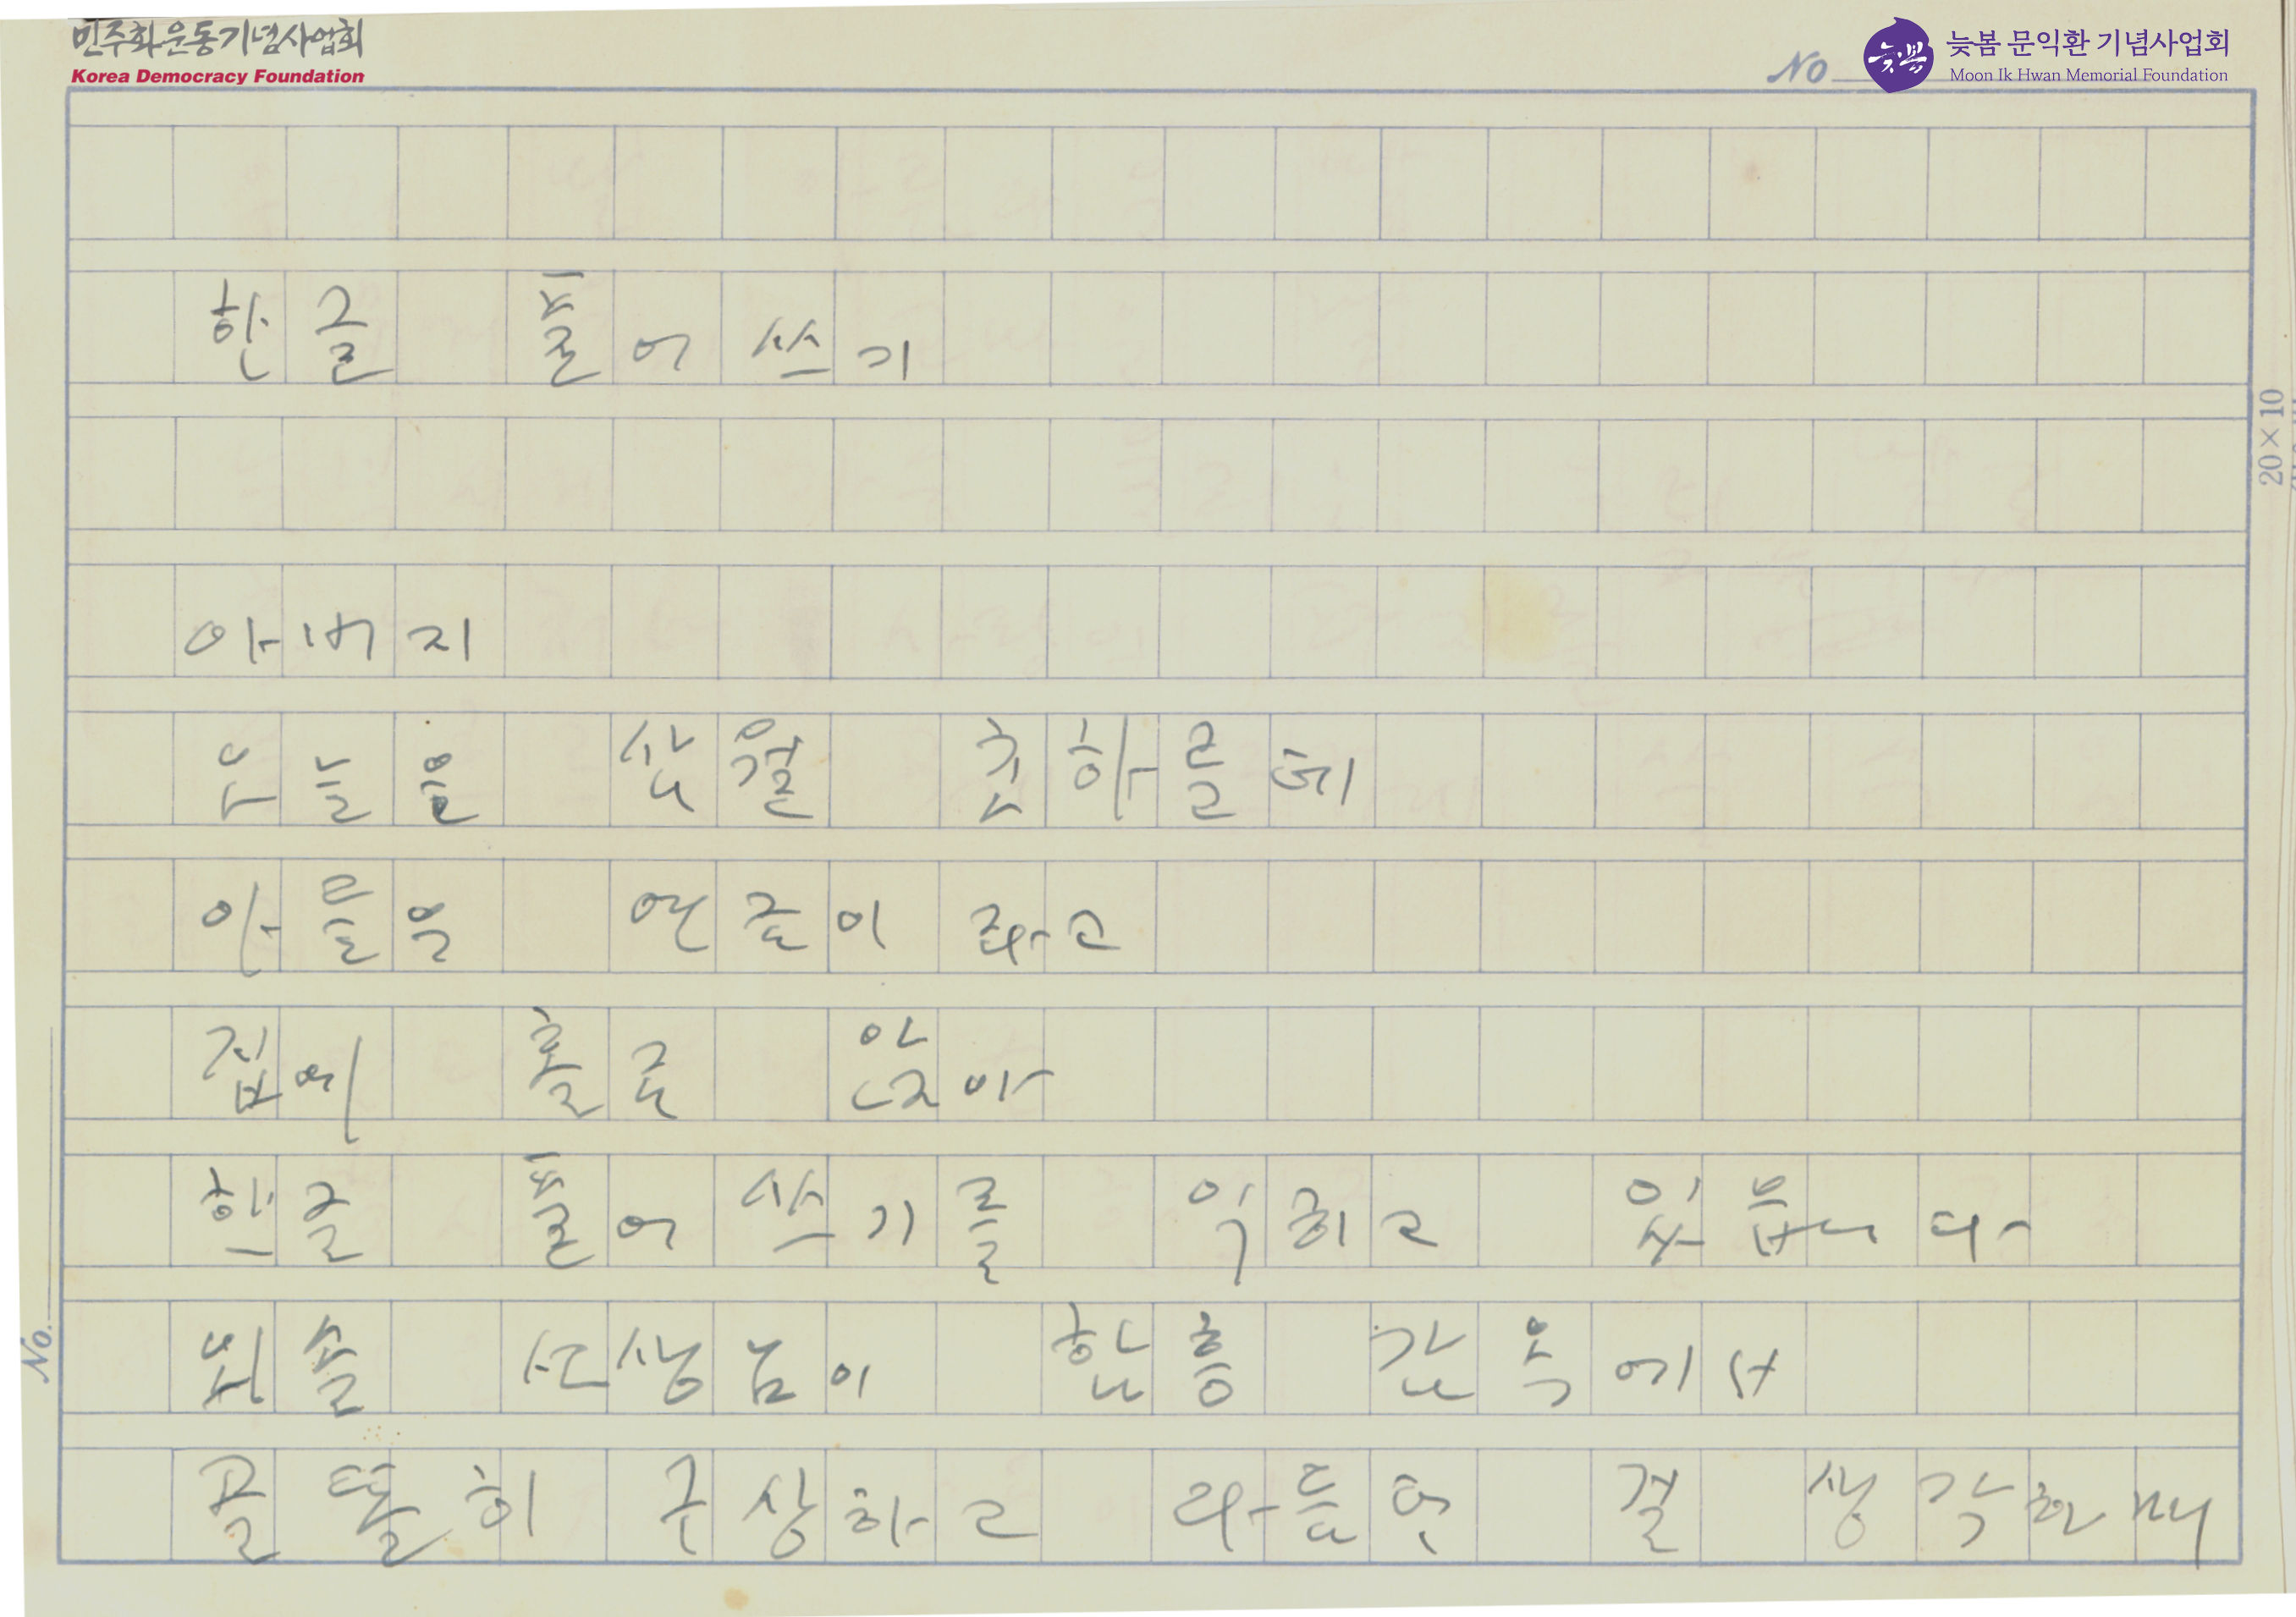 민주화운동기념사업회
Korea Democracy Foundation
No
늦봄
늦봄 문익환 기념사업회
Moon Ik Hwan Memorial Foundation
한글 풀어쓰기
20×10
아버지
오늘은 삼월 초하룬데
아들은 연금이 라고
집에 홀로 앉아
한글 풀어쓰기를 익히고 있읍니다
No.
외솔 선생님이 함흥 감옥에서
골똘히 구상하고 다듬던 걸 생각하며